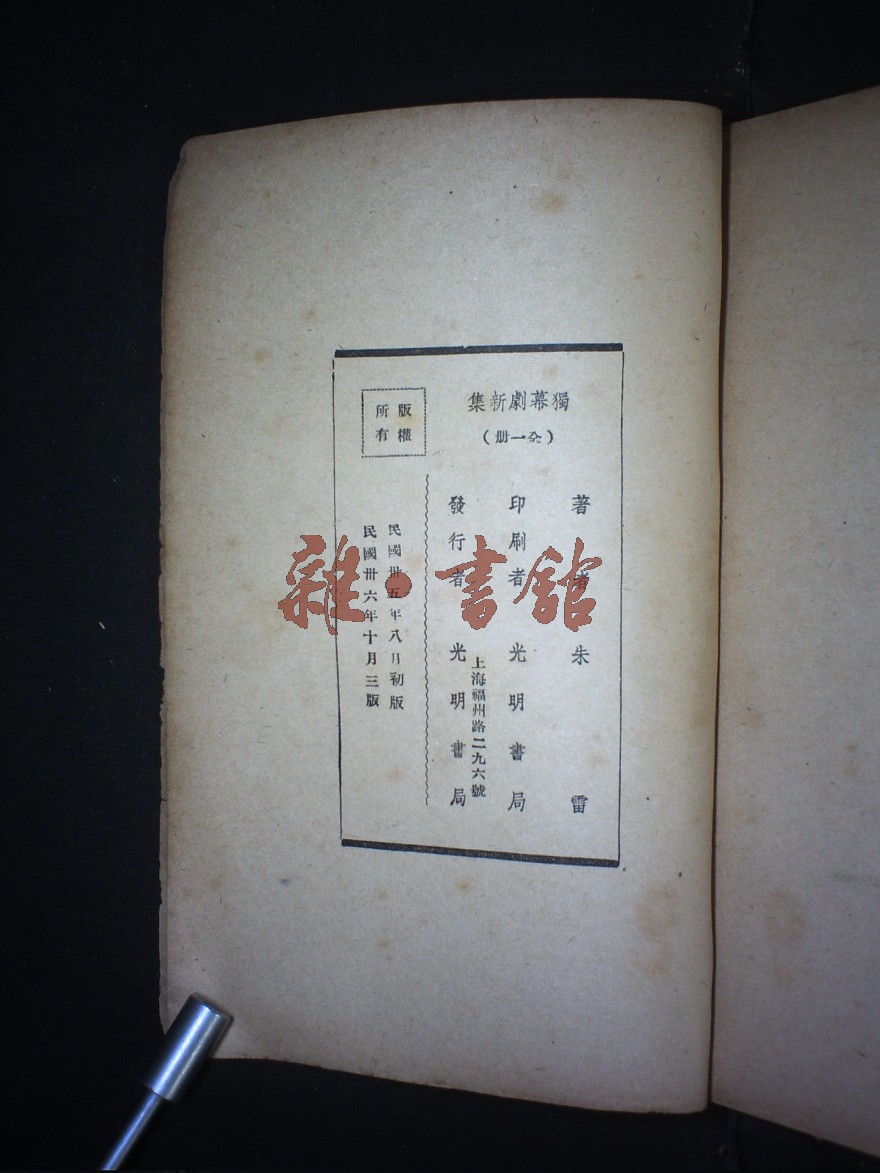 獨幕劇新集
（全一册）
著者 朱雷
印刷者 光明書局
上海福州路二九六號
發行者 光明書局
版權
所有
民國卅五年八月初版
民國卅六年十月三版
雜·書館